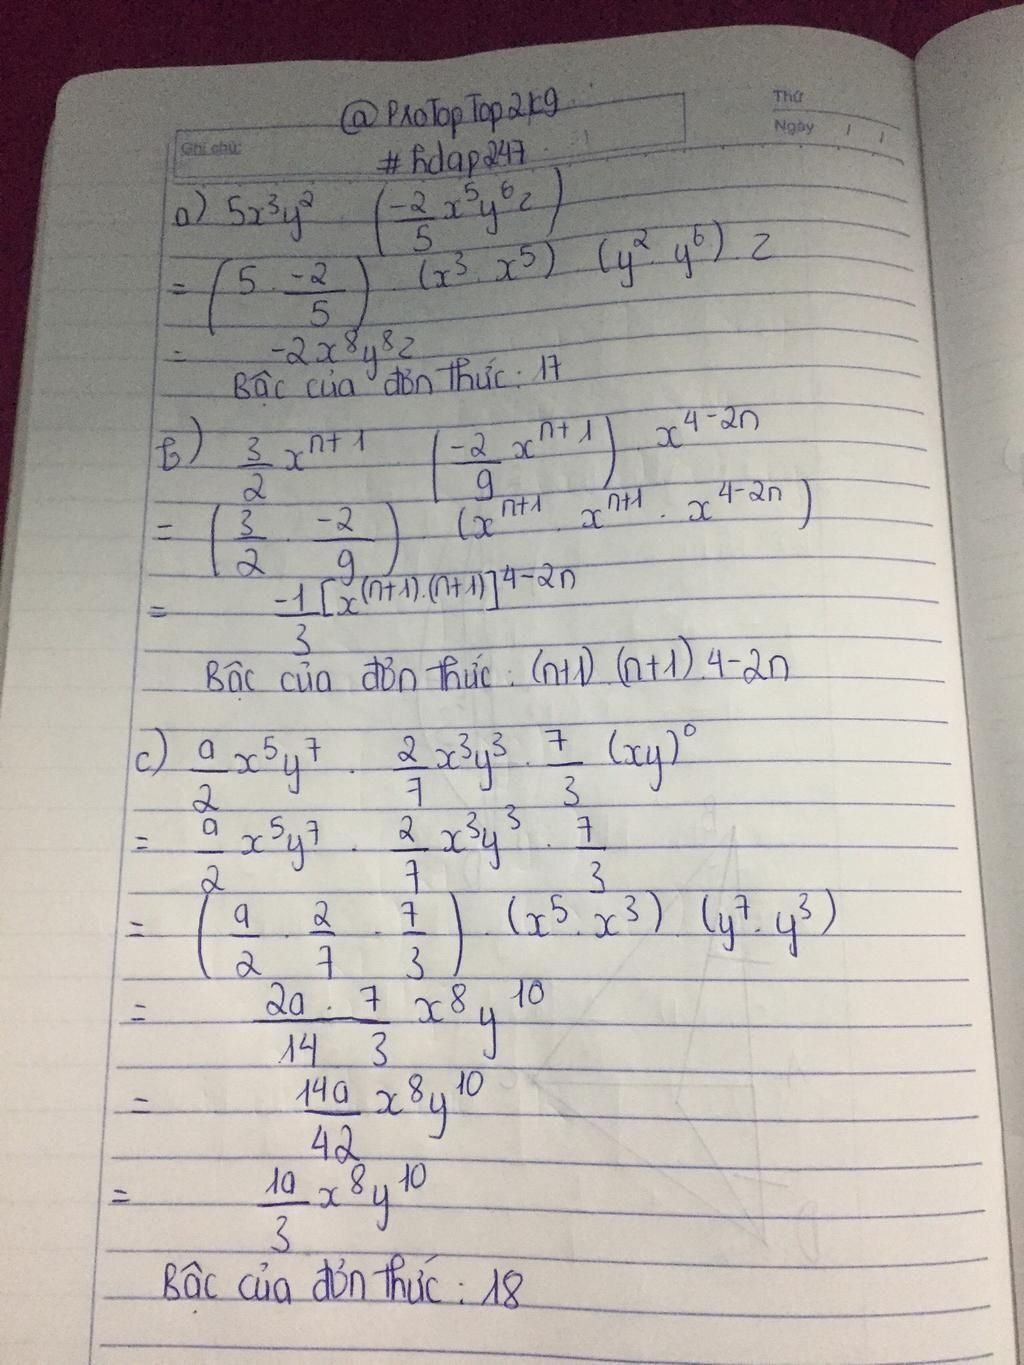 @ProTopTop2k9
Thứ
Ngày / /
Ghi chú:
#hdap247
a) 5x³y² (-2/5 x⁵y⁶z)
= (5 . -2/5) . (x³ . x⁵) (y² . y⁶) . z
= -2x⁸y⁸z
Bậc của đơn thức: 17
b) 3/2 xⁿ⁺¹ (-2/9 xⁿ⁺¹) x⁴⁻²ⁿ
= (3/2 . -2/9) . (xⁿ⁺¹ . xⁿ⁺¹ . x⁴⁻²ⁿ)
= -1/3 [x⁽ⁿ⁺¹⁾·⁽ⁿ⁺¹⁾]⁴⁻²ⁿ
Bậc của đơn thức: (n+1) (n+1) . 4-2n
c) a/2 x⁵y⁷ . 2/7 x³y³ . 7/3 (xy)⁰
= a/2 x⁵y⁷ . 2/7 x³y³ . 7/3
= (a/2 . 2/7 . 7/3) . (x⁵ . x³) (y⁷ . y³)
= 2a/14 . 7/3 x⁸y¹⁰
= 14a/42 x⁸y¹⁰
= 1a/3 x⁸y¹⁰
Bậc của đơn thức: 18